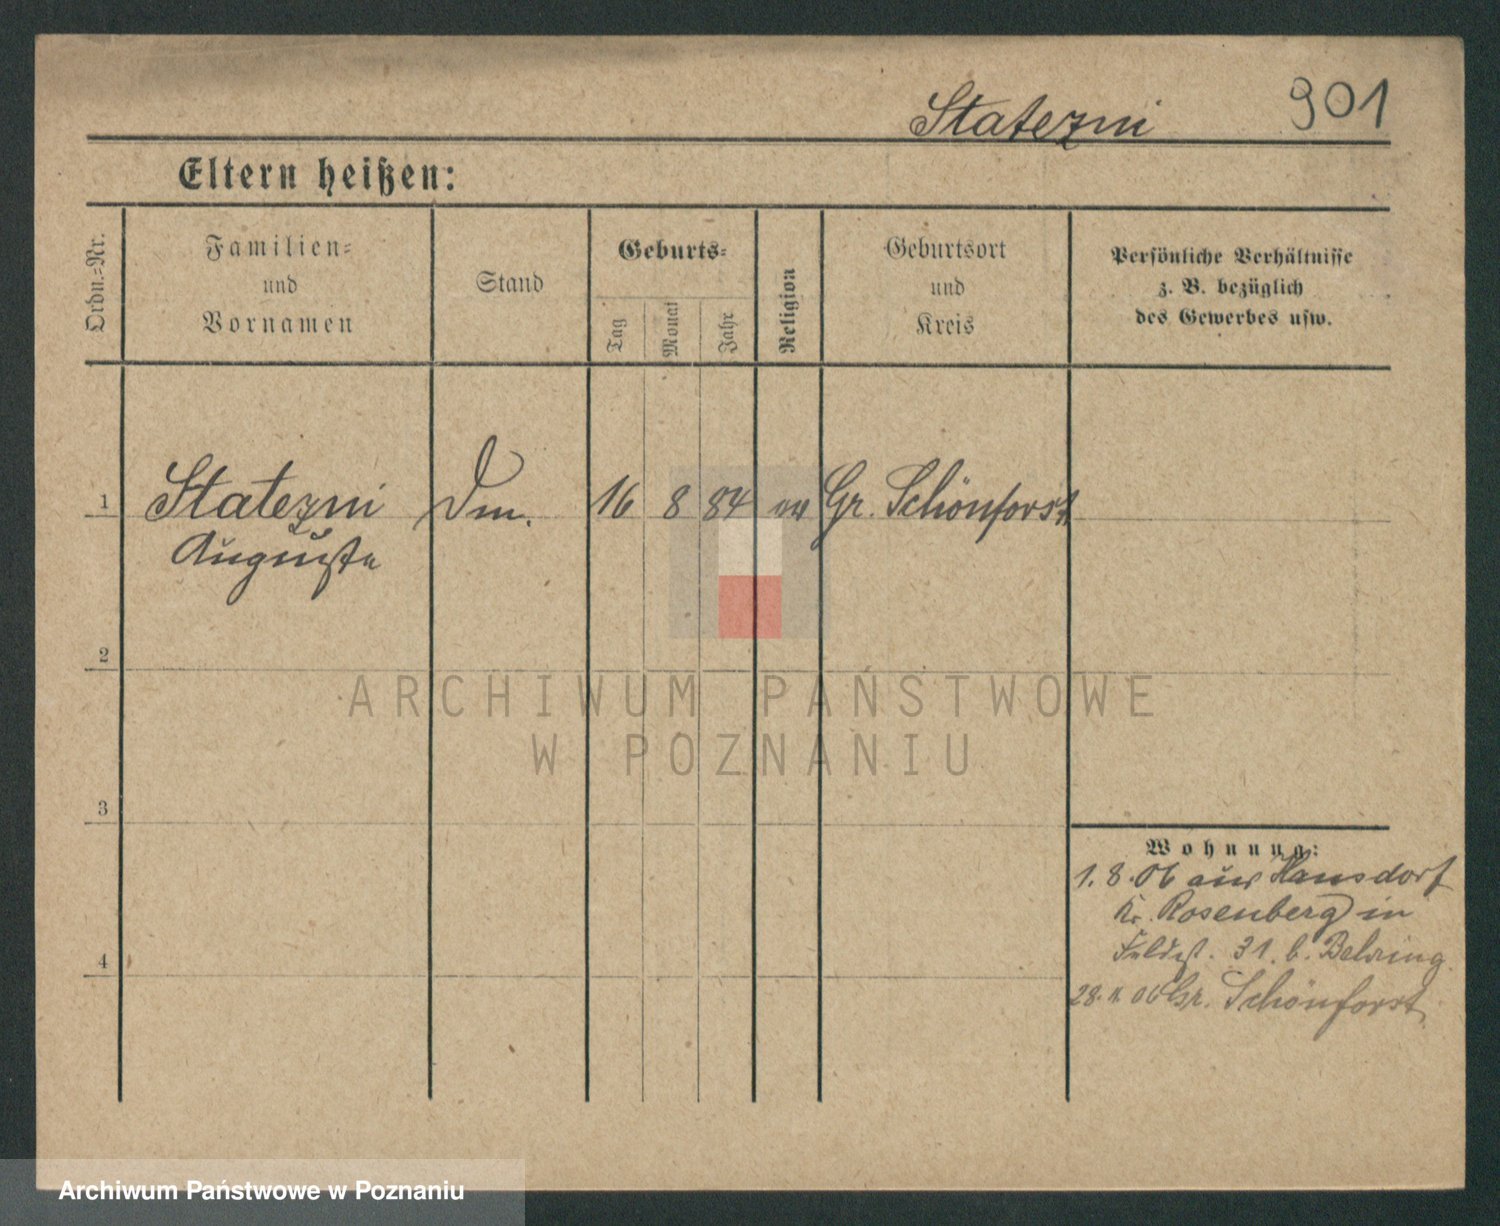 Statezni 901
Eltern heißen:
Ordn.=Nr.
Familien=
und
Vornamen
Stand
Geburts=
Tag
Monat
Jahr
Religion
Geburtsort
und
Kreis
Persönliche Verhältnisse
z. B. bezüglich
des Gewerbes usw.
1 Statezni Dm. 16 8 84 ev Gr. Schönforst
Auguste
2
3
4
Wohnung:
1. 8. 06 aus Hansdorf
Kr. Rosenberg in
31. b. Behring
28. 11. 06 Gr. Schönforst
ARCHIWUM PAŃSTWOWE
W POZNANIU
Archiwum Państwowe w Poznaniu